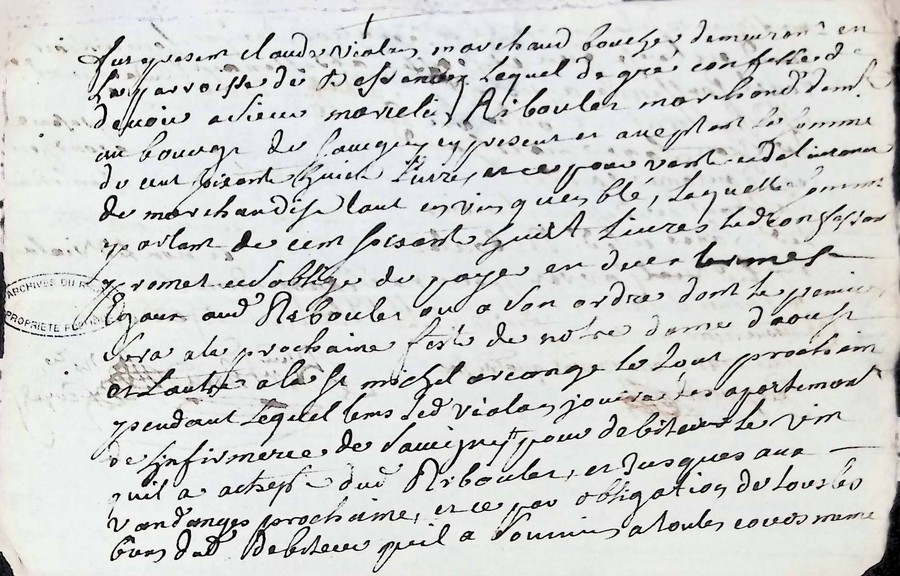 fut present claude violay marchand boucher demeurant en
la parroisse de Lequel de gré confesse
devoir a sieur Riboulet marchand dem.
au bourg de Savigny present et acceptant la somme
de cent soisante huict Livres, et ce pour vante et delivrance
de marchandise tant en vin qu'en blé, Laquelle somme
partant de cent soisante huict Livres led confessant
promet et s'oblige de payer en deux termes
Egaux aud Riboulet ou a son ordre dont le premier
sera a la prochaine feste de notre dame d'aoust
et Lautre a la St michel arcange le tout prochain
pendant Lequel tems led violay jouira les apartement
de Linfirmerie de Savigny pour debiter le vin
quil a achepté dud Riboulet, et Jusques aux
vandanges prochaine, et ce par obligation de tous les
biens dud debiteur qu'il a soumis a toutes cours meme
ARCHIVES DU R
PROPRIETE PUB